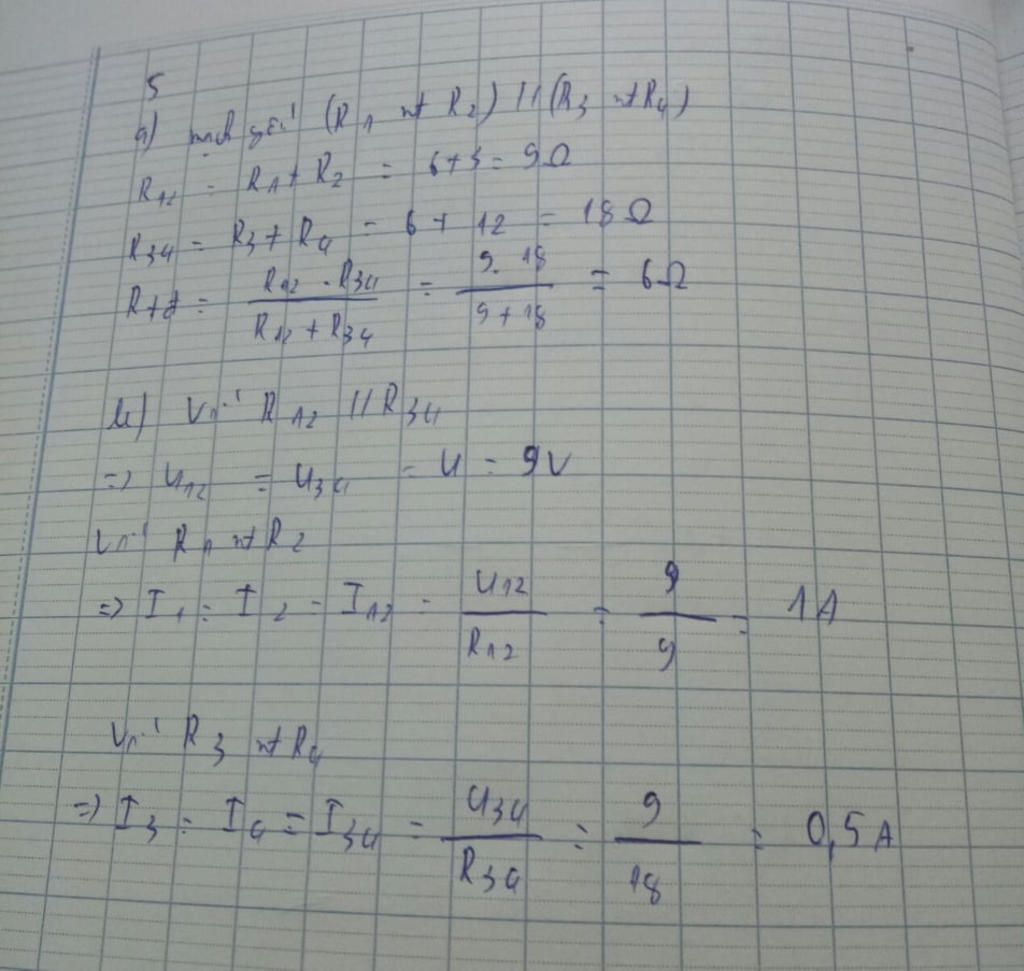 5
a) mạch gồm (R1 nt R2) // (R3 nt R4)
R12 = R1 + R2 = 6 + 3 = 9Ω
R34 = R3 + R4 = 6 + 12 = 18Ω
Rtđ = R12 . R34 / R12 + R34 = 9 . 18 / 9 + 18 = 6Ω
b) Vì R12 // R34
=> U12 = U34 = U = 9V
Vì R1 nt R2
=> I1 = I2 = I12 = U12 / R12 = 9 / 9 = 1A
Vì R3 nt R4
=> I3 = I4 = I34 = U34 / R34 = 9 / 18 = 0,5A